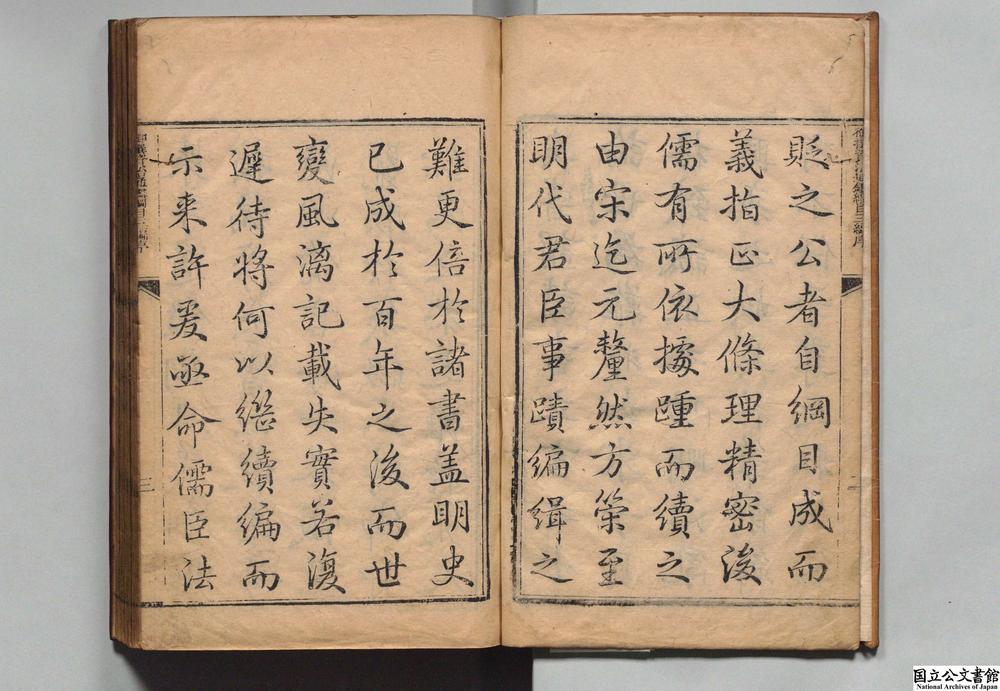 貶之公者自綱目成而
義指正大條理精密後
儒有所依據踵而續之
由宋迄元釐然方策至
明代君臣事蹟編緝之
難更倍於諸書盖明史
已成於百年之後而世
變風漓記載失實若復
遲待將何以繼續編而
示来許爰亟命儒臣法
二
三
国立公文書館
National Archives of Japan